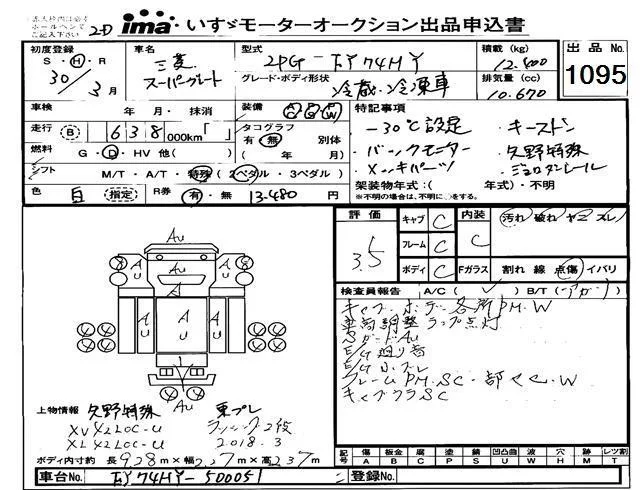 ima いすゞモーターオークション出品申込書
初度登録 車名 型式 積載 (kg) 出品 No.
S・H・R 三菱 2PG-FY74HY 12.400
30/3月 スーパーグレート グレード・ボディ形状 冷蔵・冷凍車 排気量 (cc) 10.670 1095
車検 年・月・抹消 装備 特記事項
走行 B 638 000km「 」 タコグラフ 有・無 別体 -30℃設定・キーストン
燃料 G・D・HV 他( ) ( 年/ 月) バックモニター・矢野特殊
シフト M/T・A/T・特殊 (2ペダル・3ペダル) メッキパーツ・ジョロダレール
色 白 指定 R券 有・無 13.480 円 架装物年式:( 年式)・不明
※不明の場合は、不明に○をする。
評価 3.5 キャブ C 内装 C 汚れ 破れ ヤニ スレ
フレーム C
ボディ C Fガラス 割れ 線 点傷 イバリ
検査員報告 A/C( ✓ ) B/T(アガリ)
キャブ ボデー各所PM.W
車高調整ランプ点灯
SガードAu
E/G廻り音
フレームPM.SC・部サビ.W
キャブウラSC
Au
Au
Au
Au
Au
上物情報 矢野特殊 東プレ
XV42LOC-U ラッシング2段
XL42LOC-U 2018.3
ボディ内寸約 長9.28m×幅2.27m×高2.37m
記号 傷 A 板金 B 腐 C 塗 P 錆 S 凹凸曲 U 波 W 穴 H 跡 M レツ割 T
車台No. FY74HY-500051 登録No.